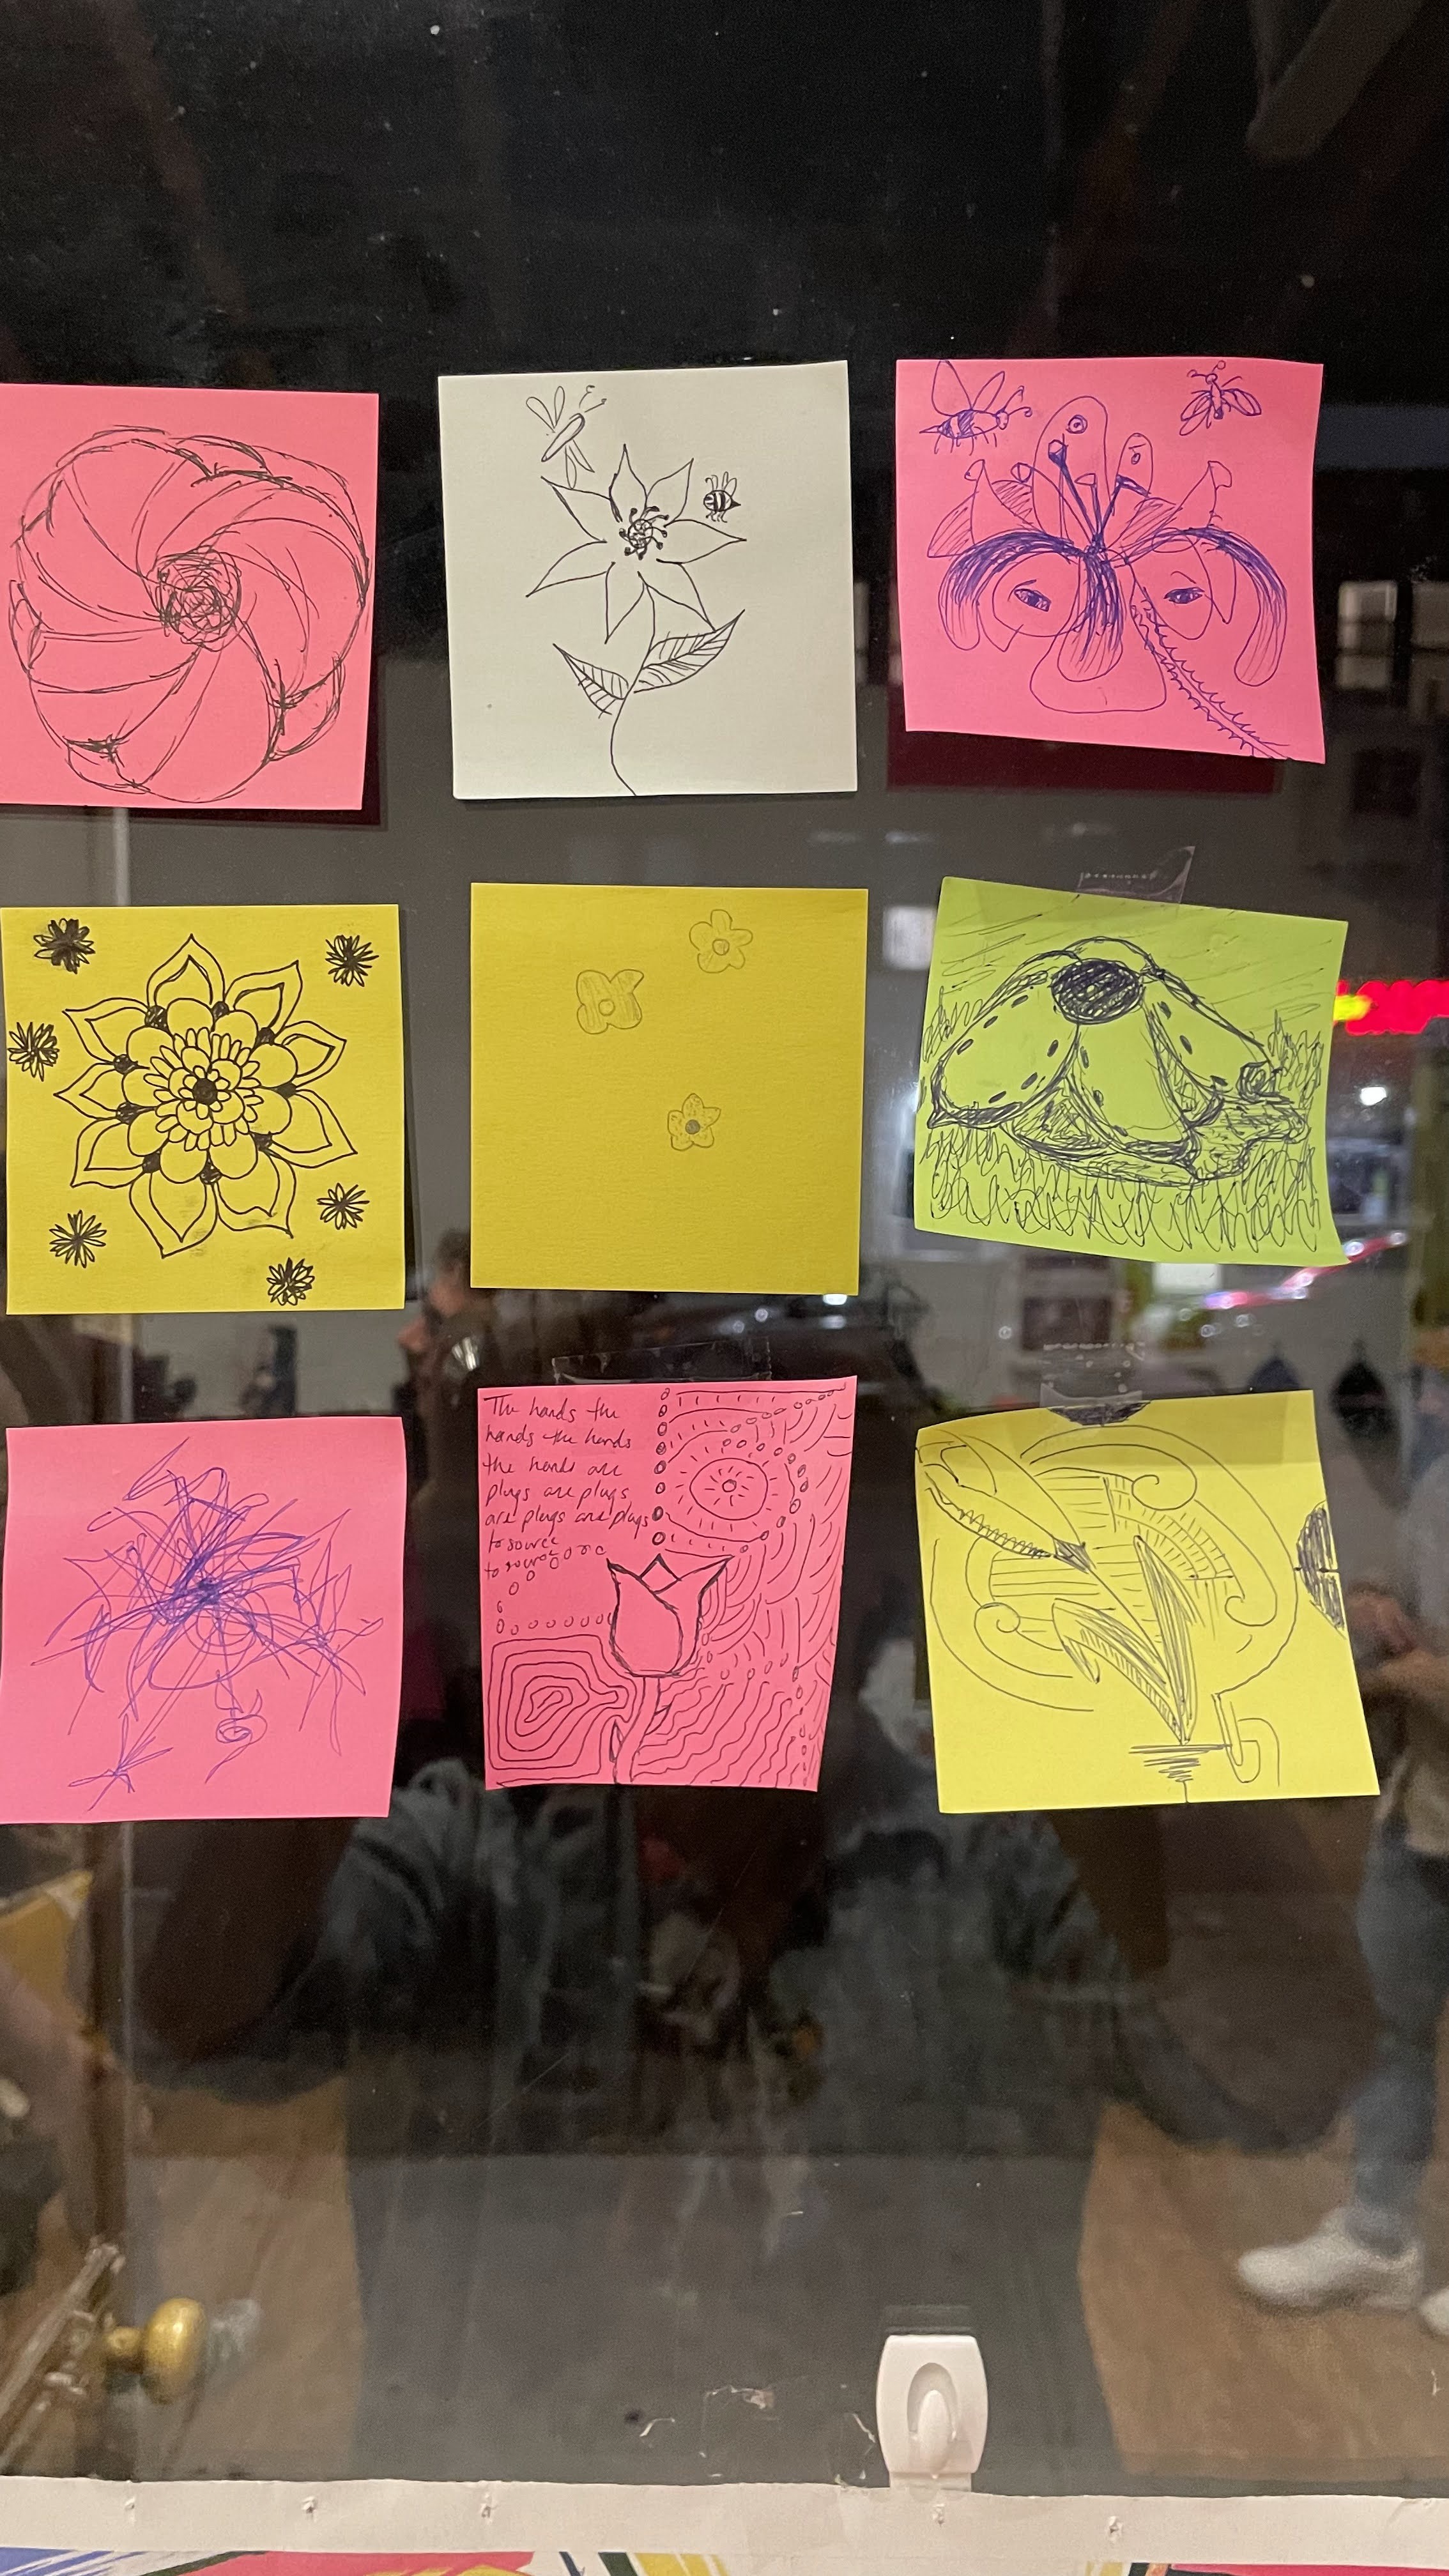 The hands the
hands the hands
the hands are
plugs are plugs
are plugs are plugs
to source
to source